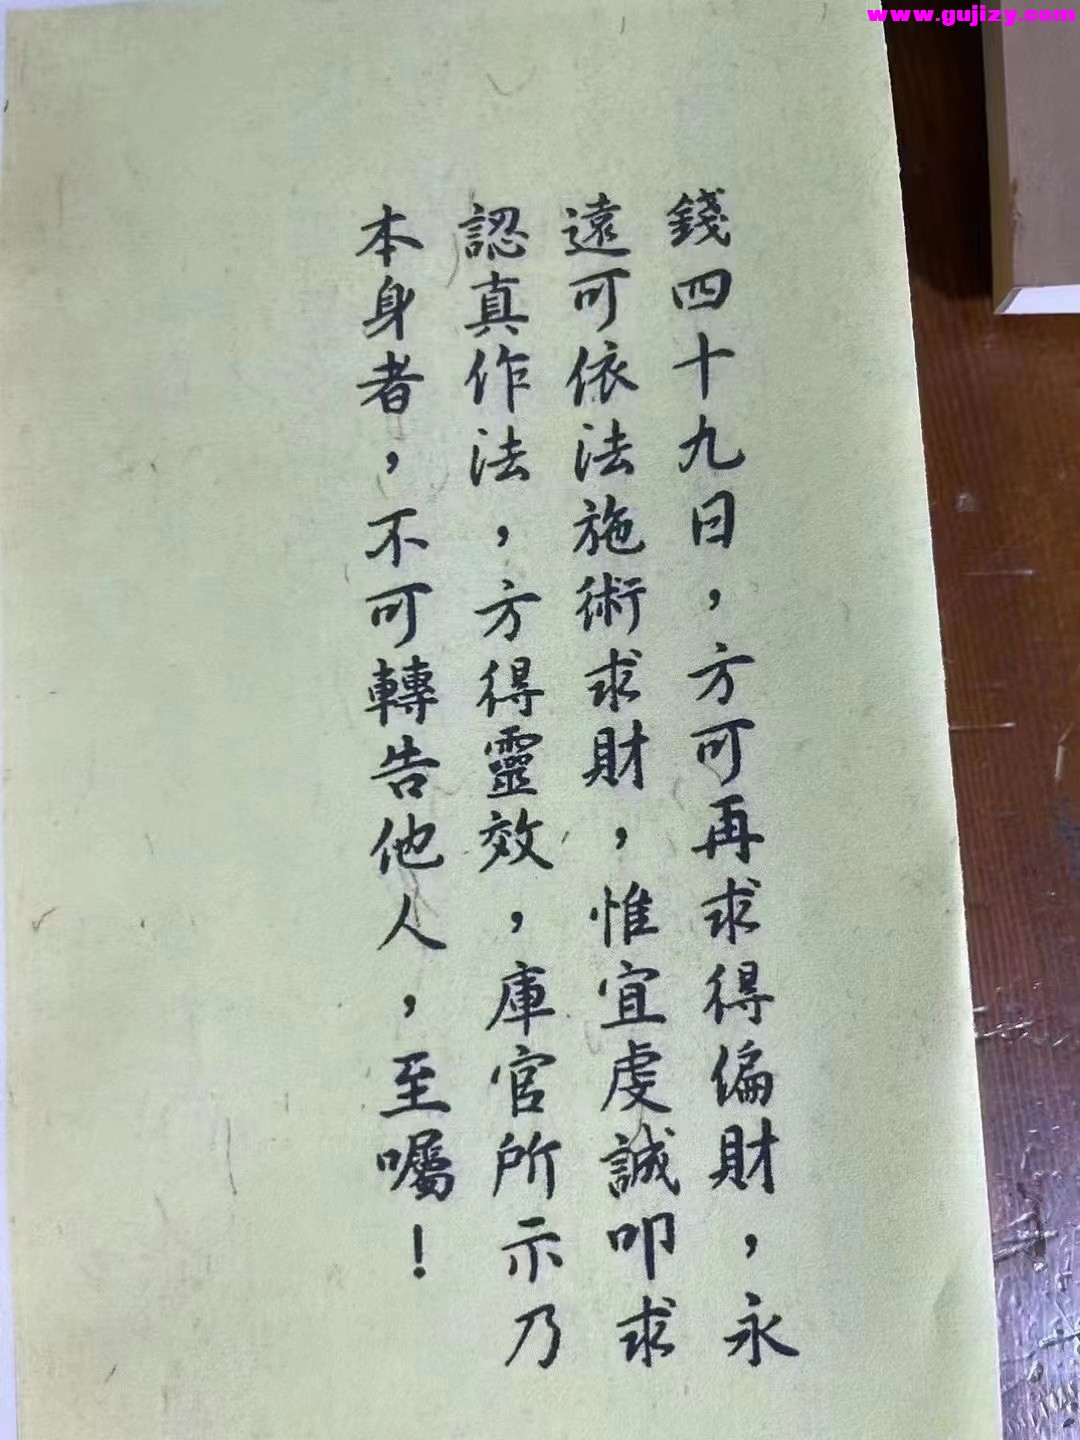 www.gujizy.com
錢四十九日，方可再求得偏財，永
遠可依法施術求財，惟宜虔誠叩求
認真作法，方得靈效，庫官所示乃
本身者，不可轉告他人，至囑！